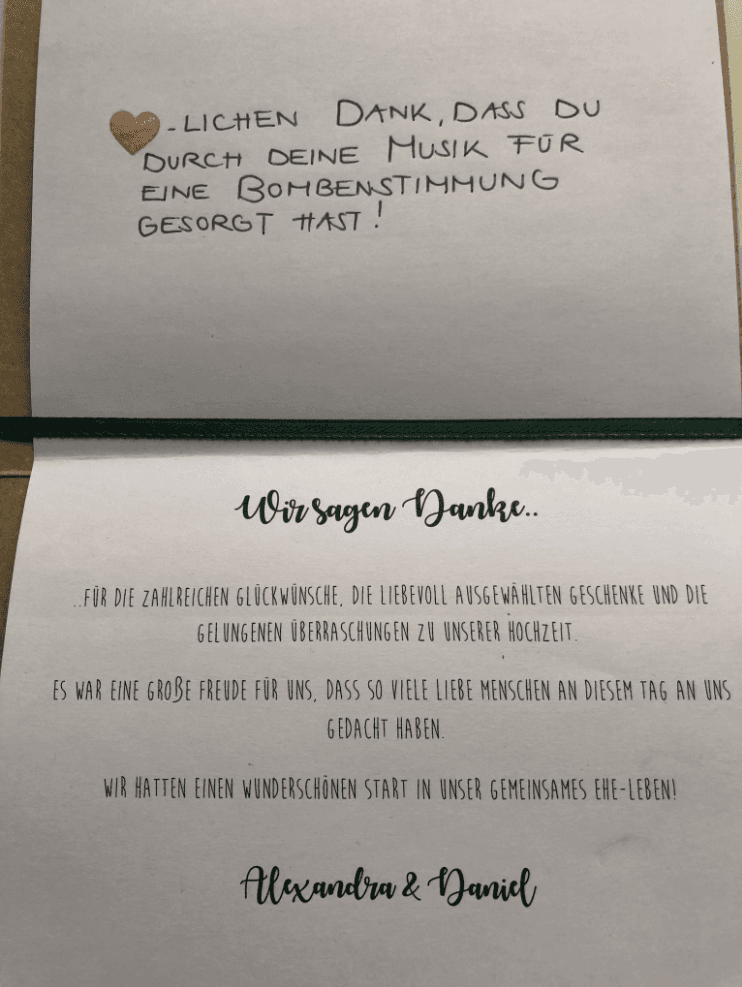 -LICHEN DANK, DASS DU
DURCH DEINE MUSIK FÜR
EINE BOMBENSTIMMUNG
GESORGT HAST!
Wir sagen Danke..
..FÜR DIE ZAHLREICHEN GLÜCKWÜNSCHE, DIE LIEBEVOLL AUSGEWÄHLTEN GESCHENKE UND DIE
GELUNGENEN ÜBERRASCHUNGEN ZU UNSERER HOCHZEIT.
ES WAR EINE GROßE FREUDE FÜR UNS, DASS SO VIELE LIEBE MENSCHEN AN DIESEM TAG AN UNS
GEDACHT HABEN.
WIR HATTEN EINEN WUNDERSCHÖNEN START IN UNSER GEMEINSAMES EHE-LEBEN!
Alexandra & Daniel